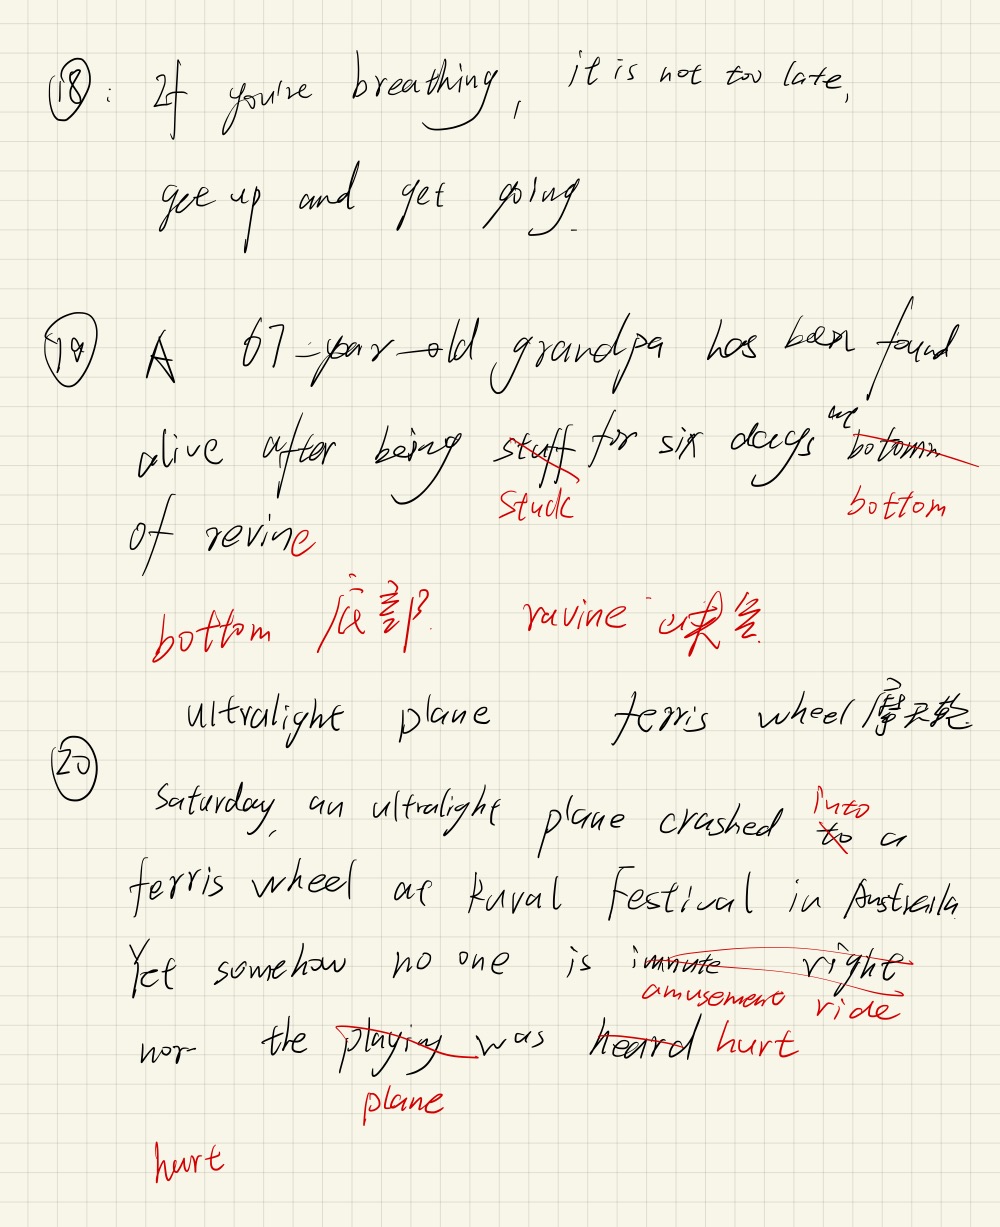 18: If you're breathing, it is not too late,
get up and get going.
19 A 67-year-old grandpa has been found
alive after being stuff for six days at botomm
stuck bottom
of revine
bottom 底部 ravine 峡谷
ultralight plane ferris wheel 摩天
20
into
Saturday, an ultralight plane crashed to a
ferris wheel at Rural Festival in
Yet somehow no one is right
amusement ride
nor the playing was heard hurt
plane
hurt